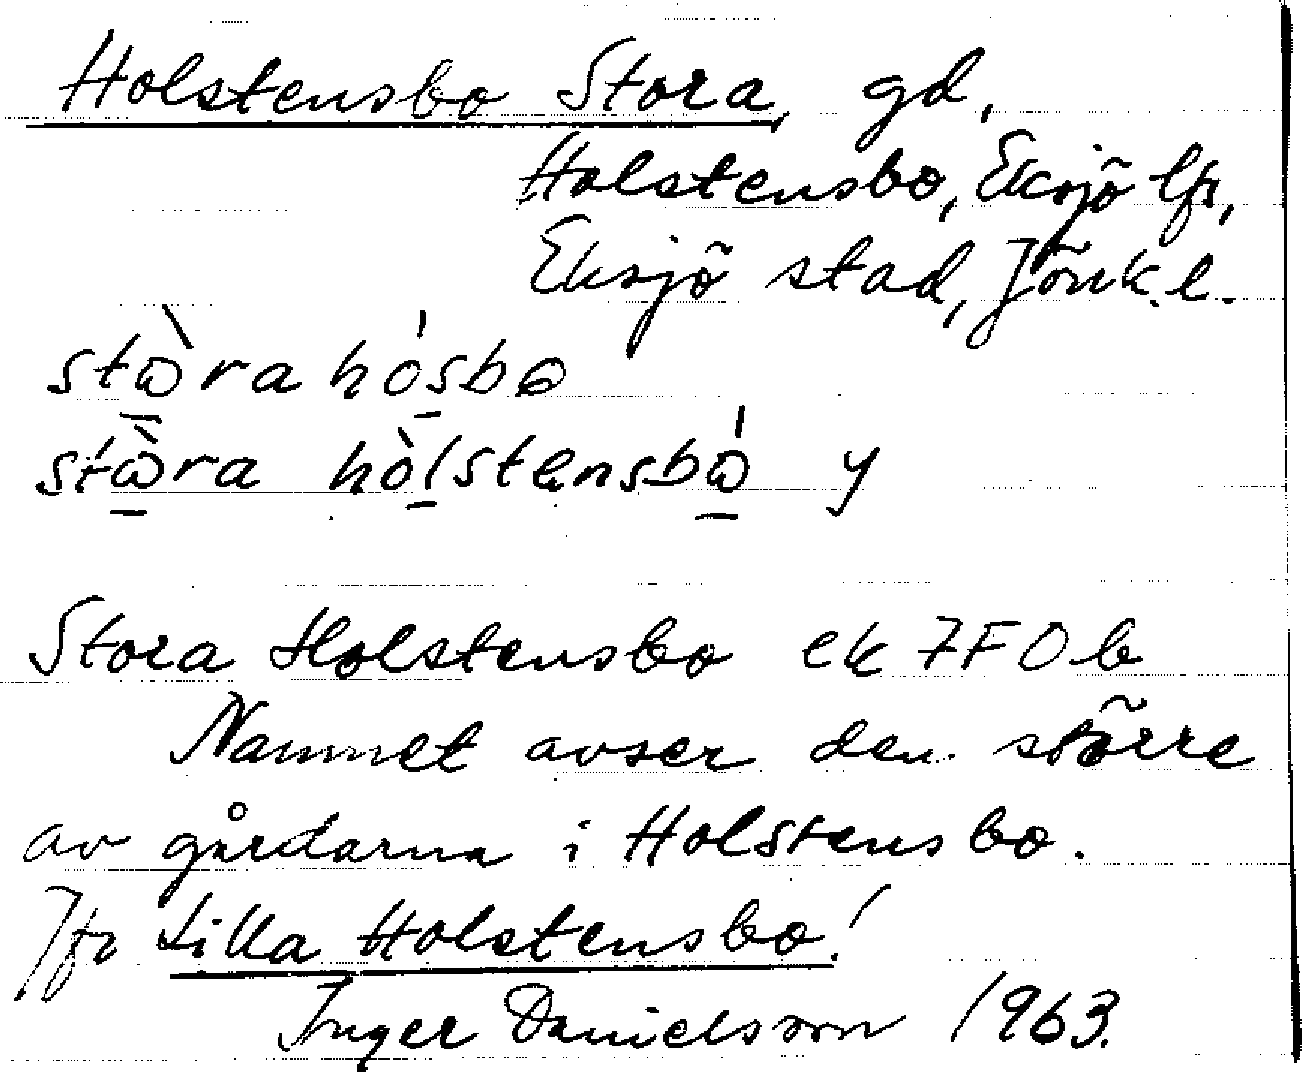 Holstensbo Stora, gd,
Holstensbo, Eksjö lfs,
Eksjö stad, Jönk. l.
stὼ̱ra hós̱bɷ
stὼ̱ra hòḻstensbώ̱ y
Stora Holstensbo ek 7F0b
Namnet avser den större
av gårdarna i Holstensbo.
Jfr Lilla Holstensbo!
Inger Danielsson 1963.